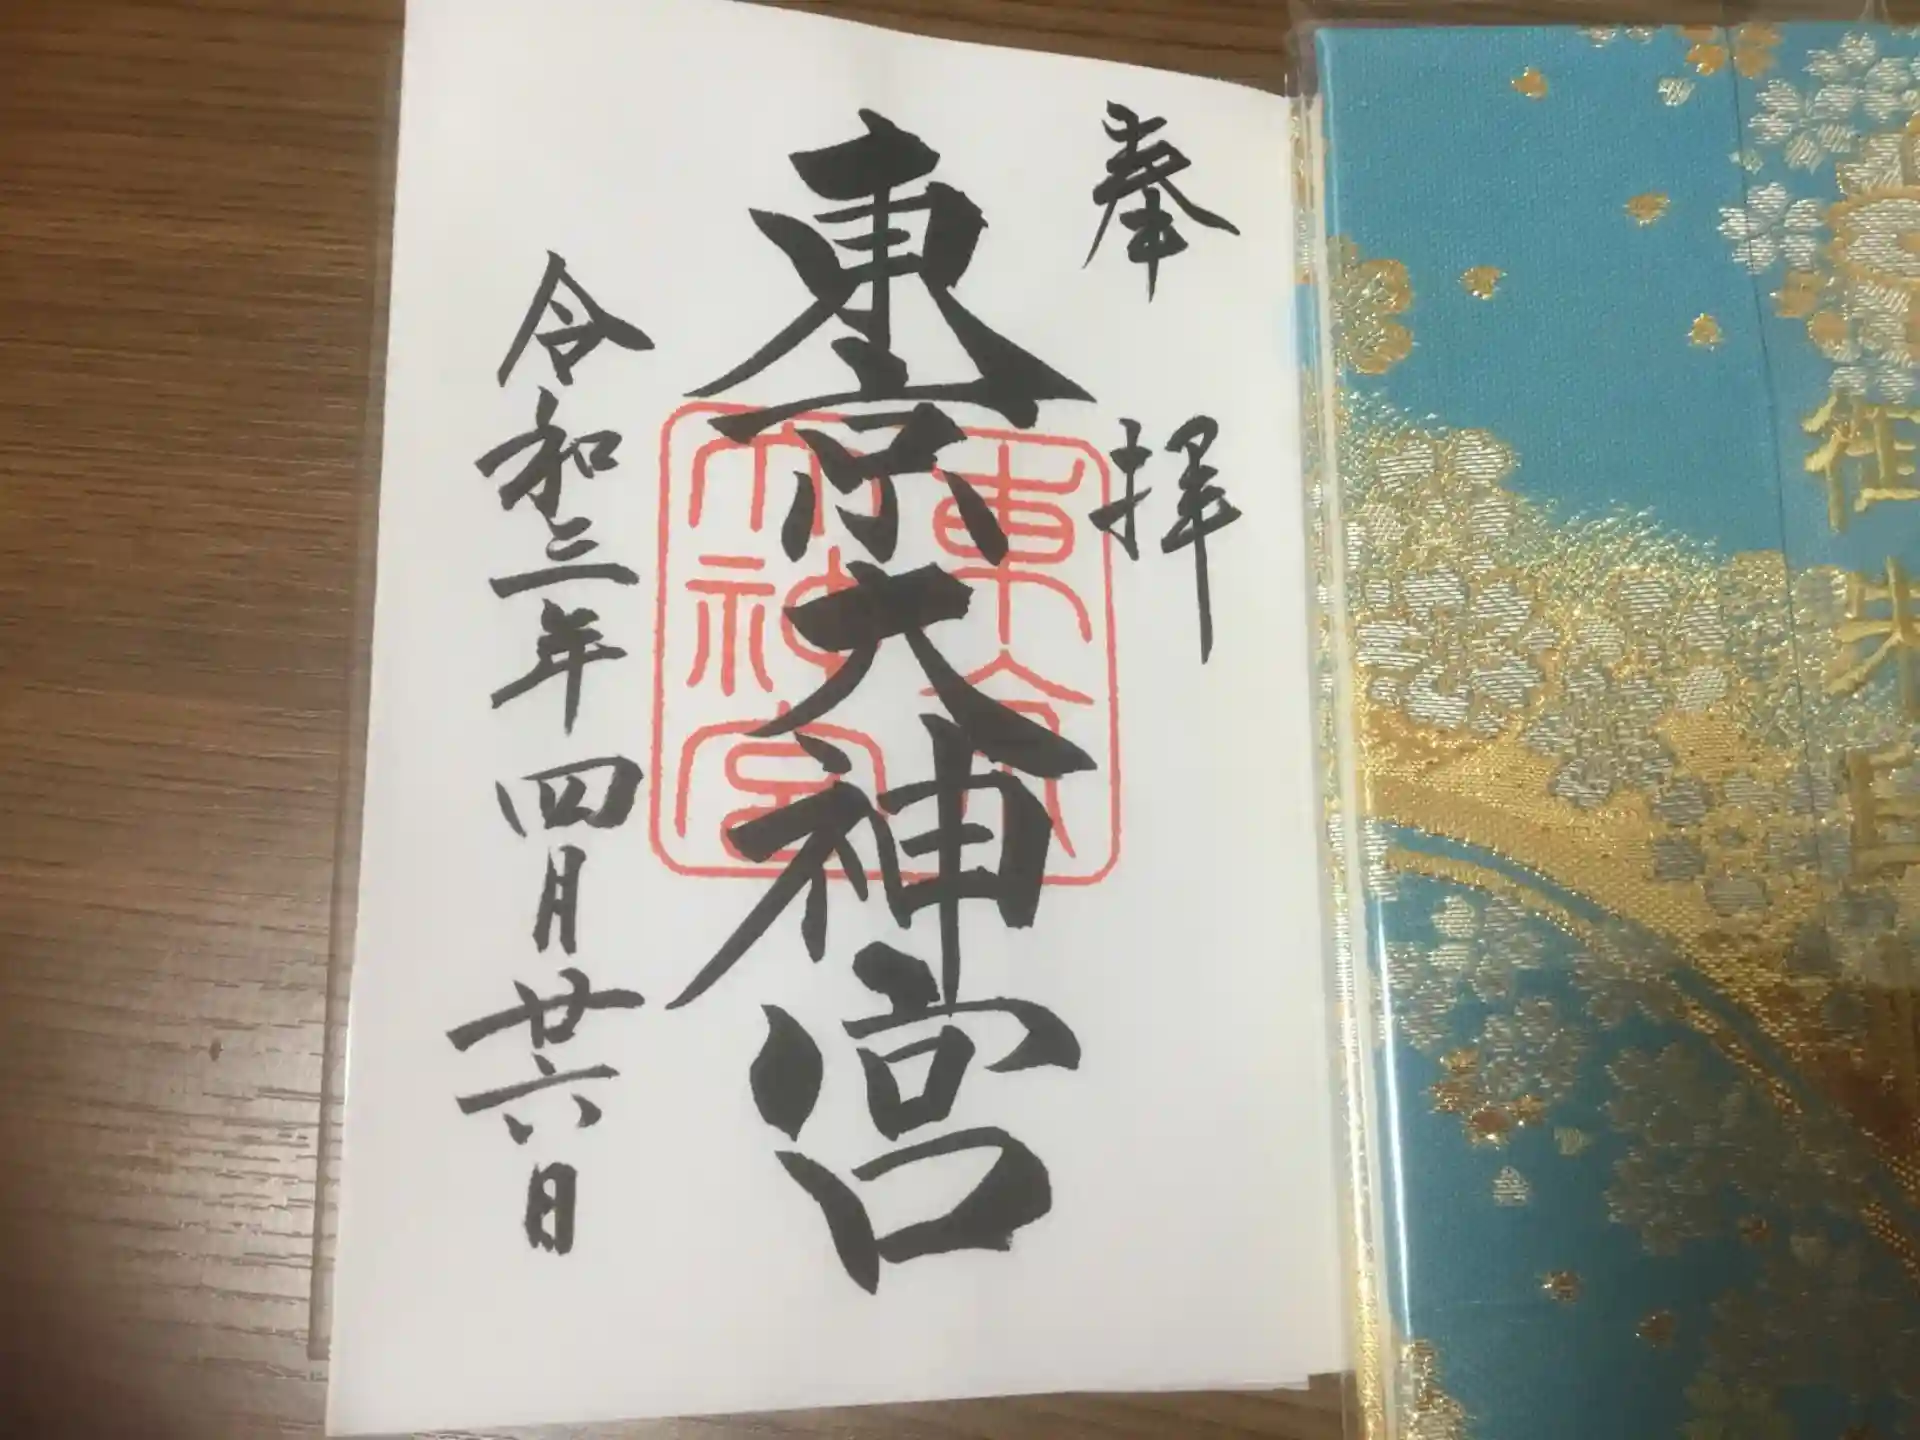 奉拝
東京大神宮
令和三年四月廿六日
東京
大神宮
御朱印